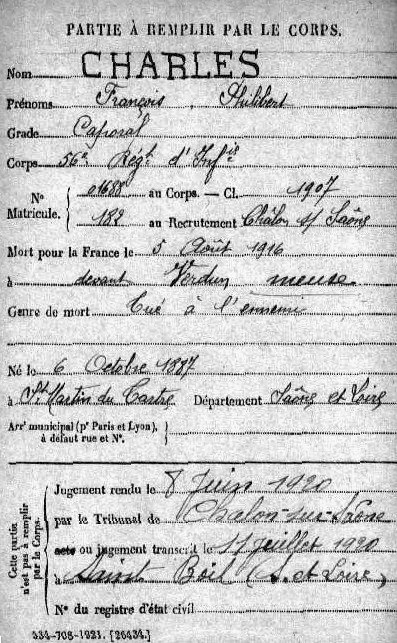 PARTIE À REMPLIR PAR LE CORPS.
Nom CHARLES
Prénoms François Philibert
Grade Caporal
Corps 56e Régt d'Infie
N° Matricule. 01688 au Corps. — Cl. 1907
182 au Recrutement Châlon s/ Saône
Mort pour la France le 5 Août 1916
à devant Verdun meuse
Genre de mort Tué à l'ennemi
Né le 6 Octobre 1887
à St Martin du Tartre Département Saône et Loire
Arrt municipal (pr Paris et Lyon),
à défaut rue et N°.
Cette partie n'est pas à remplir par le Corps.
Jugement rendu le 8 Juin 1920
par le Tribunal de Chalon-sur-Saône
acte ou jugement transcrit le 11 juillet 1920
à Saint Boil (S. et Loire)
N° du registre d'état civil
534-708-1921. [26434.]